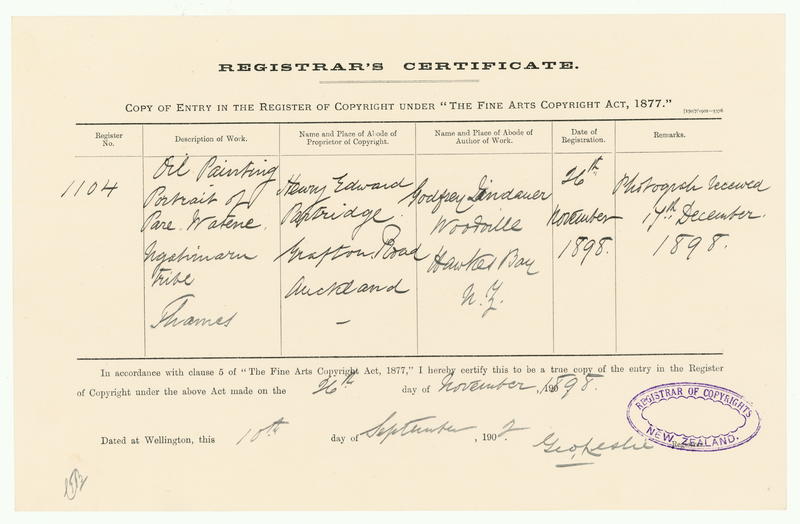 REGISTRAR'S CERTIFICATE.
COPY OF ENTRY IN THE REGISTER OF COPYRIGHT UNDER "THE FINE ARTS COPYRIGHT ACT, 1877."
Register No.
Description of Work.
Name and Place of Abode of Proprietor of Copyright.
Name and Place of Abode of Author of Work.
Date of Registration.
Remarks.
1104
Oil Painting
Portrait of
Pare Watene.
Ngatimaru
tribe
Thames
Henry Edward
Partridge.
Grafton Road
Auckland
—
Godfrey Lindauer
Woodville
Hawkes Bay
N.Z.
26th
November
1898.
Photograph received
17th December.
1898.
In accordance with clause 5 of "The Fine Arts Copyright Act, 1877," I hereby certify this to be a true copy of the entry in the Register
of Copyright under the above Act made on the 26th day of November, 1898.
Dated at Wellington, this 10th day of September, 1902.
Geo, Leslie
REGISTRAR OF COPYRIGHTS
NEW ZEALAND.